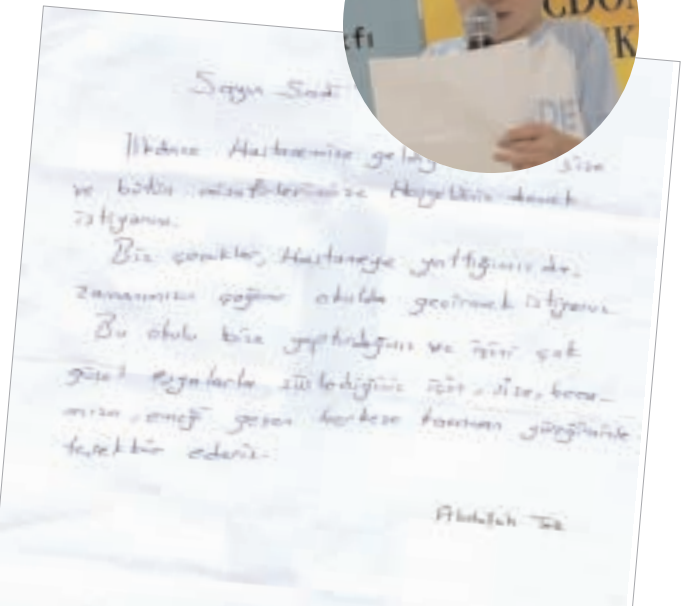 cfı
CDO
UK
DE
Sayın Sadi
İlkönce Hastanemize gelmiş size
ve bütün misafirlerimize Hoşgeldiniz demek
istiyorum.
Biz çocuklar, Hastaneye yattığımızda,
zamanımızı çoğunu okulda geçirmek istiyoruz.
Bu okulu bize yaptırdığınız ve içini çok
güzel eşyalarla süslediğiniz için, size, hoca-
mıza, emeği geçen herkese kocaman yüreğimizle
teşekkür ederiz.
Abdullah